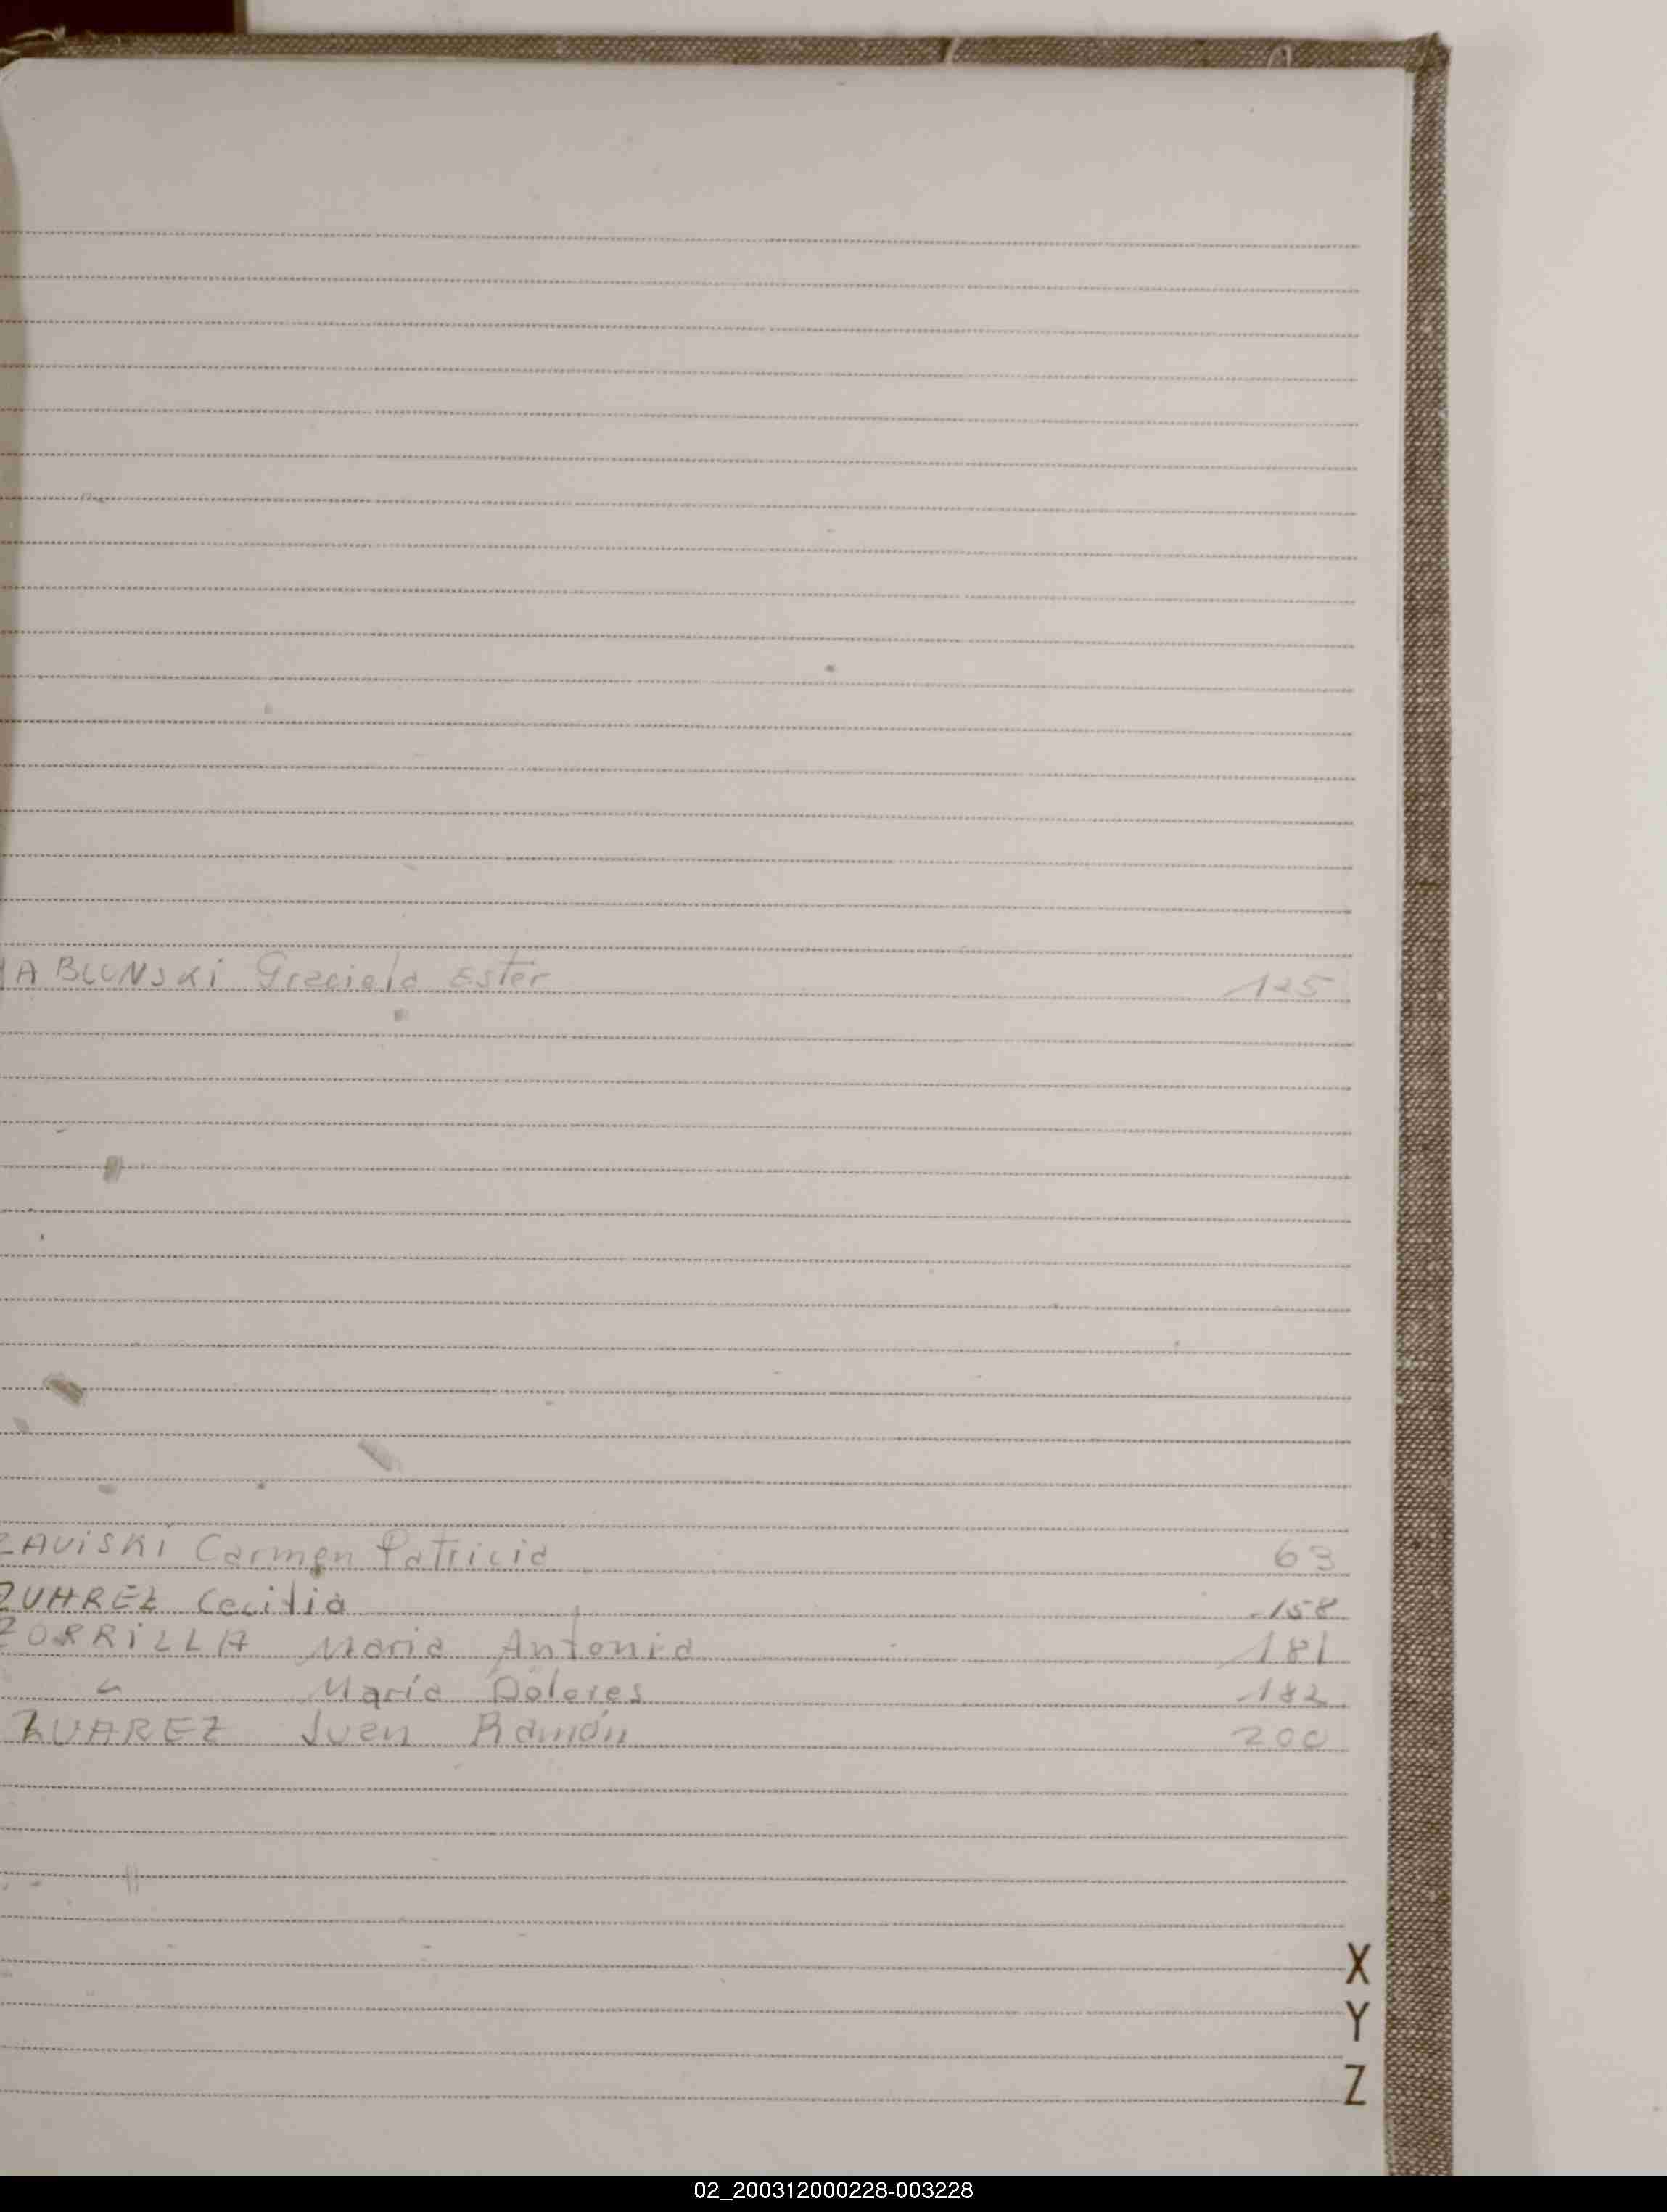 YABLUNSKI Graciela Ester 125
ZAVISKI Carmen Patricia 63
ZUAREZ Cecilia 158
ZORRILLA Maria Antonia 181
" María Dolores 182
ZUAREZ Juan Ramón 200
X
Y
Z
02_200312000228-003228